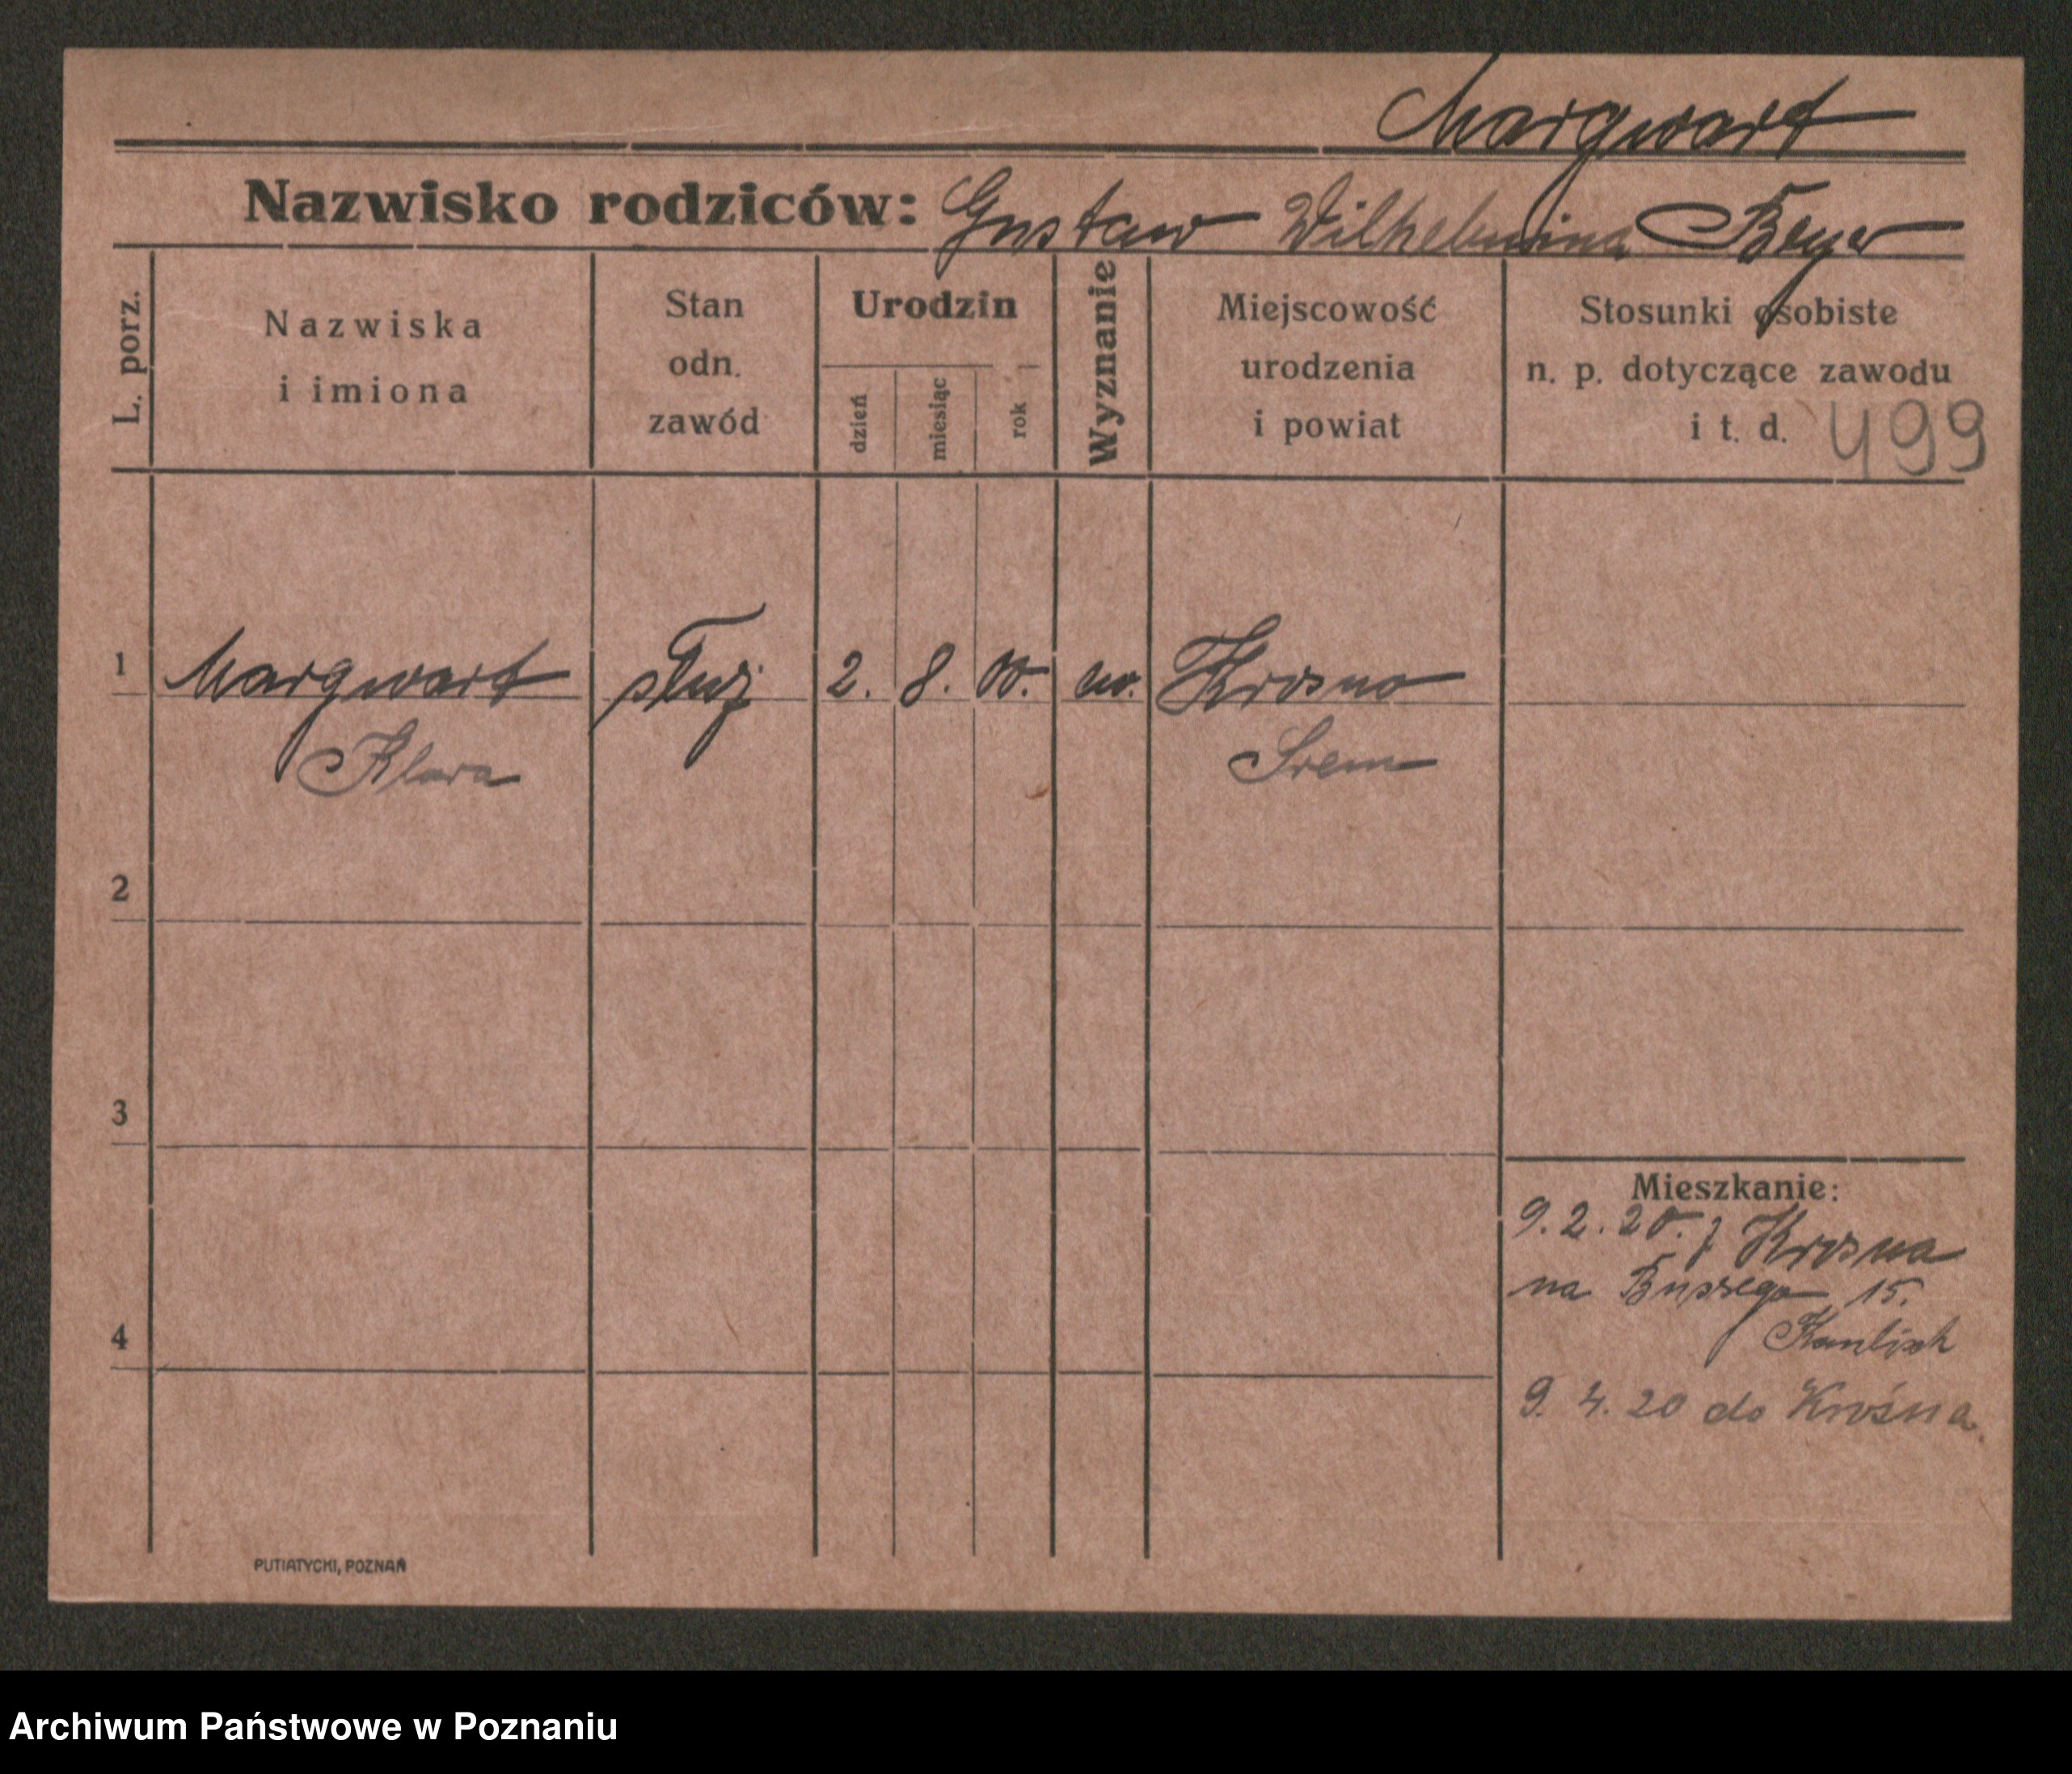 Margwart
Nazwisko rodziców: Gustaw Wilhelmina Beyer
L. porz.
Nazwiska
i imiona
Stan
odn.
zawód
Urodzin
dzień
miesiąc
rok
Wyznanie
Miejscowość
urodzenia
i powiat
Stosunki osobiste
n. p. dotyczące zawodu
i t. d. 499
1 Margwart służ 2. 8. 00. ew. Krosno
Klara Srem
2
3
4
Mieszkanie:
9. 2. 20. z Krosna
na 15.
9. 4. 20 do Krośna.
PUTIATYCKI, POZNAŃ
Archiwum Państwowe w Poznaniu